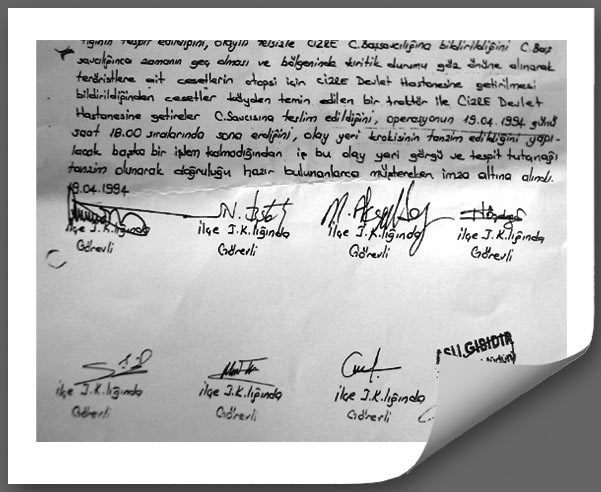 tiğinin tespit edildiğini, olayın telsizle CİZRE C.Başsavcılığına bildirildiğini C.Baş
savcılığınca zamanın geç olması ve bölgeninde kiritik durumu göz önüne alınarak
teröristlere ait cesetlerin otopsi için CİZRE Devlet Hastanesine getirilmesi
bildirildiğinden cesetler köyden temin edilen bir traktör ile CİZRE Devlet
Hastanesine getirelek C.Savcısına teslim edildiğini, operasyonun 19.04.1994 günü
saat 18.00 sıralarında sona erdiğini, olay yeri krokisinin tanzim edildiğini yapı-
lacak başka bir işlem kalmadığından iş bu olay yeri görgü ve tespit tutanağı
tanzim olunarak doğruluğu hazır bulunanlarca müştereken imza altına alındı.
19.04.1994
İlçe J.K.lığında İlçe J.K.lığında İlçe J.K.lığında İlçe J.K.lığında
Görevli Görevli Görevli Görevli
ASLI GİBİDİR
İlçe J.K.lığında İlçe J.K.lığında İlçe J.K.lığında
Görevli Görevli Görevli